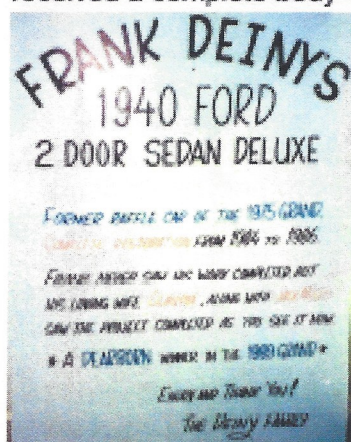 received a complete body
FRANK DEINY'S
1940 FORD
2 DOOR SEDAN DELUXE
FORMER RAFFLE CAR OF THE 1975 GRAND.
COMPLETE RESTORATION FROM 1984 TO 1986
FRANK NEVER SAW HIS WORK COMPLETED BUT
HIS LOVING WIFE, ALONG WITH
SAW THE PROJECT COMPLETED AS YOU SEE IT NOW
* A DEARBORN WINNER IN THE 1989 GRAND *
ENJOY AND THANK YOU!
THE DEINY FAMILY